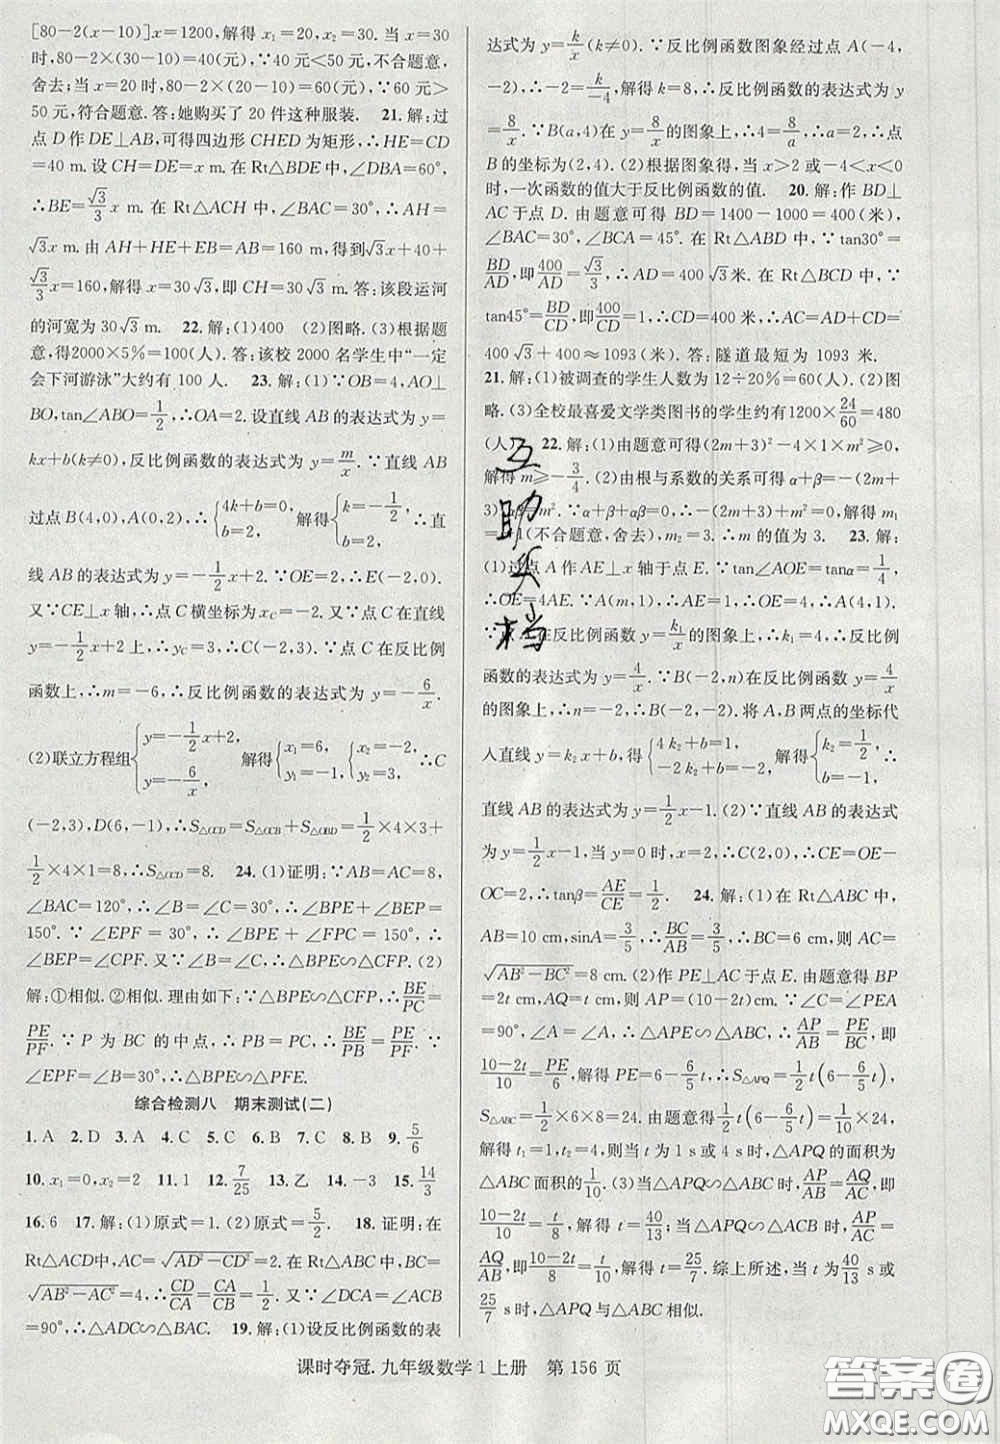 [80-2(x-10)]x=1200,解得 x₁=20,x₂=30. 当 x=30
时,80-2×(30-10)=40(元),∵40元<50元,不合题意,
舍去;当 x=20时,80-2×(20-10)=60(元),∵60元>
50元,符合题意.答:她购买了20件这种服装. 21.解:过
点D作DE⊥AB,可得四边形CHED为矩形,∴HE=CD
=40 m.设CH=DE=x m.在Rt△BDE中,∠DBA=60°,
∴BE=√3/3 x m.在Rt△ACH中,∠BAC=30°,∴AH=
√3x m.由AH+HE+EB=AB=160 m,得到√3x+40+
√3/3 x=160,解得x=30√3,即CH=30√3 m.答:该段运河
的河宽为30√3 m. 22.解:(1)400 (2)图略.(3)根据题
意,得2000×5%=100(人).答:该校2000名学生中“一定
会下河游泳”大约有100人. 23.解:(1)∵OB=4,AO⊥
BO,tan∠ABO=1/2,∴OA=2.设直线AB的表达式为y=
kx+b(k≠0),反比例函数的表达式为y=m/x.∵直线AB
过点B(4,0),A(0,2),∴{4k+b=0, b=2. 解得{k=-1/2, b=2. ∴直
线AB的表达式为y=-1/2x+2.∵OE=2,∴E(-2,0).
又∵CE⊥x轴,∴点C横坐标为x_C=-2.又∵点C在直线
y=-1/2x+2上,∴y_C=3,∴C(-2,3).∵点C在反比例
函数上,∴m=-6,∴反比例函数的表达式为y=-6/x.
(2)联立方程组{y=-1/2x+2, y=-6/x. 解得{x₁=6, y₁=-1, {x₂=-2, y₂=3. ∴C
(-2,3),D(6,-1),∴S△OCD=S△OCB+S△OBD=1/2×4×3+
1/2×4×1=8,∴S△OCD=8. 24.(1)证明:∵AB=AC=8,
∠BAC=120°,∴∠B=∠C=30°,∴∠BPE+∠BEP=
150°.∵∠EPF=30°,∴∠BPE+∠FPC=150°,∴
∠BEP=∠CPF.又∵∠B=∠C,∴△BPE∽△CFP.(2)
解:①相似.②相似.理由如下:∵△BPE∽△CFP,∴BE/PC=
PE/PF.∵P为BC的中点,∴PB=PC,∴BE/PB=PE/PF.∵
∠EPF=∠B=30°,∴△BPE∽△PFE.
综合检测八 期末测试(二)
1.A 2.D 3.A 4.C 5.C 6.B 7.C 8.B 9.5/6
10.x₁=0,x₂=2 11.1 12.7/25 13.乙 14.-3 15.14/3
16.6 17.解:(1)原式=1.(2)原式=5/2. 18.证明:在
Rt△ACD中,AC=√(AD²-CD²)=2.在Rt△ABC中,BC=
√(AB²-AC²)=4,∴CD/CA=CA/CB=1/2.又∵∠DCA=∠ACB
=90°,∴△ADC∽△BAC. 19.解:(1)设反比例函数的表
达式为y=k/x(k≠0).∵反比例函数图象经过点A(-4,
-2),∴-2=k/-4,解得k=8,∴反比例函数的表达式为
y=8/x.∵B(a,4)在y=8/x的图象上,∴4=8/a,∴a=2,∴点
B的坐标为(2,4).(2)根据图象得,当x>2或-4<x<0
时,一次函数的值大于反比例函数的值. 20.解:作BD⊥
AC于点D.由题意可得BD=1400-1000=400(米),
∠BAC=30°,∠BCA=45°.在Rt△ABD中,∵tan30°=
BD/AD,即400/AD=√3/3,∴AD=400√3米.在Rt△BCD中,∵
tan45°=BD/CD,即400/CD=1,∴CD=400,∴AC=AD+CD=
400√3+400≈1093(米).答:隧道最短为1093米.
21.解:(1)被调查的学生人数为12÷20%=60(人).(2)图
略.(3)全校最喜爱文学类图书的学生约有1200×24/60=480
(人). 22.解:(1)由题意可得(2m+3)²-4×1×m²≥0,
解得m≥-3/4.(2)由根与系数的关系可得α+β=-(2m+
3),αβ=m².∵α+β+αβ=0,∴-(2m+3)+m²=0,解得m₁
=-1(不合题意,舍去),m₂=3.∴m的值为3. 23.解:
(1)过点A作AE⊥x轴于点E.∵tan∠AOE=tanα=1/4,
∴OE=4AE.∵A(m,1),∴AE=1,∴OE=4,∴A(4,1).
∵点A在反比例函数y=k₁/x的图象上,∴k₁=4,∴反比例
函数的表达式为y=4/x.∵B(-2,n)在反比例函数y=4/x
的图象上,∴n=-2,∴B(-2,-2).将A,B两点的坐标代
入直线y=k₂x+b,得{4k₂+b=1, -2k₂+b=-2, 解得{k₂=1/2, b=-1, ∴
直线AB的表达式为y=1/2x-1.(2)∵直线AB的表达式
为y=1/2x-1,当y=0时,x=2,∴C(2,0),∴CE=OE-
OC=2,∴tanβ=AE/CE=1/2. 24.解:(1)在Rt△ABC中,
AB=10 cm,sinA=3/5,∴BC/AB=3/5,∴BC=6 cm,则AC=
√(AB²-BC²)=8 cm.(2)作PE⊥AC于点E.由题意得BP
=2t cm,AQ=t cm,则AP=(10-2t)cm.∵∠C=∠PEA
=90°,∠A=∠A,∴△APE∽△ABC,∴AP/AB=PE/BC,即
(10-2t)/10=PE/6,∴PE=6-6/5t,∴S△APQ=1/2t(6-6/5t).又∵
S△ABC=1/2×6×8=24,∴由题意得1/2t(6-6/5t)=1/10×24,
解得t₁=1,t₂=4,则当t为1 s或4 s时,△APQ的面积为
△ABC面积的1/10.(3)当△APQ∽△ABC时,AP/AB=AQ/AC,即
(10-2t)/10=t/8,解得t=40/13;当△APQ∽△ACB时,AP/AC=
AQ/AB,即(10-2t)/8=t/10,解得t=25/7.综上所述,当t为40/13 s或
25/7 s时,△APQ与△ABC相似.
互助文档
课时夺冠.九年级数学1上册 第156页
答案圈
MXQE.COM